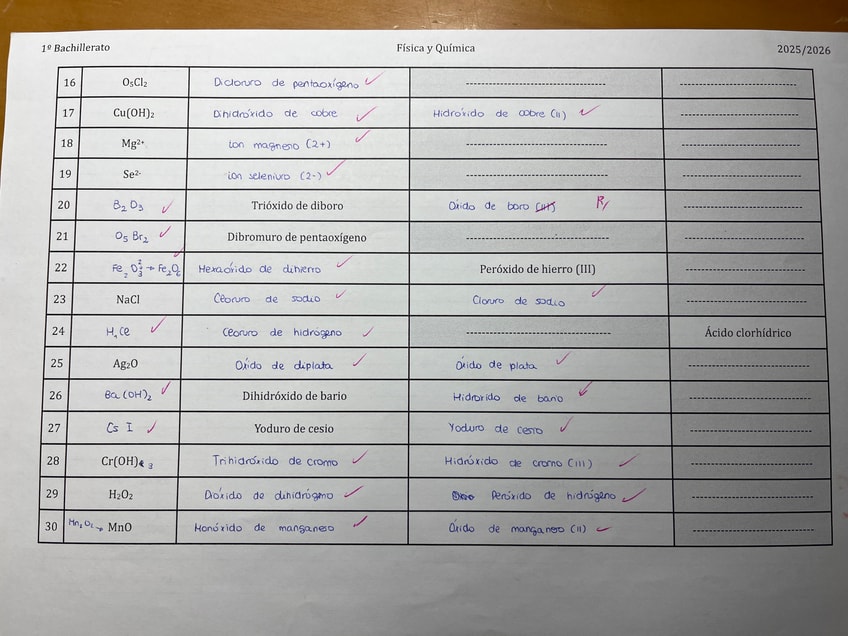 1º Bachillerato Física y Química 2025/2026
16 O₅Cl₂ Dicloruro de pentaoxígeno ---------- ----------
17 Cu(OH)₂ Dihidróxido de cobre Hidróxido de cobre (II) ----------
18 Mg²⁺ Ion magnesio (2+) ---------- ----------
19 Se²⁻ ion seleniuro (2-) ---------- ----------
20 B₂O₃ Trióxido de diboro Óxido de boro (III) ----------
21 O₅Br₂ Dibromuro de pentaoxígeno ---------- ----------
22 Fe₂O₃² → Fe₂O₆ Hexaóxido de dihierro Peróxido de hierro (III) ----------
23 NaCl Cloruro de sodio Cloruro de sodio ----------
24 H₁Cl Cloruro de hidrógeno ---------- Ácido clorhídrico
25 Ag₂O Óxido de diplata Óxido de plata ----------
26 Ba(OH)₂ Dihidróxido de bario Hidróxido de bario ----------
27 CsI Yoduro de cesio Yoduro de cesio ----------
28 Cr(OH)₃ Trihidróxido de cromo Hidróxido de cromo (III) ----------
29 H₂O₂ Dióxido de dihidrógeno Peróxido de hidrógeno ----------
30 Mn₂O₂ → MnO Monóxido de manganeso Óxido de manganeso (II) ----------